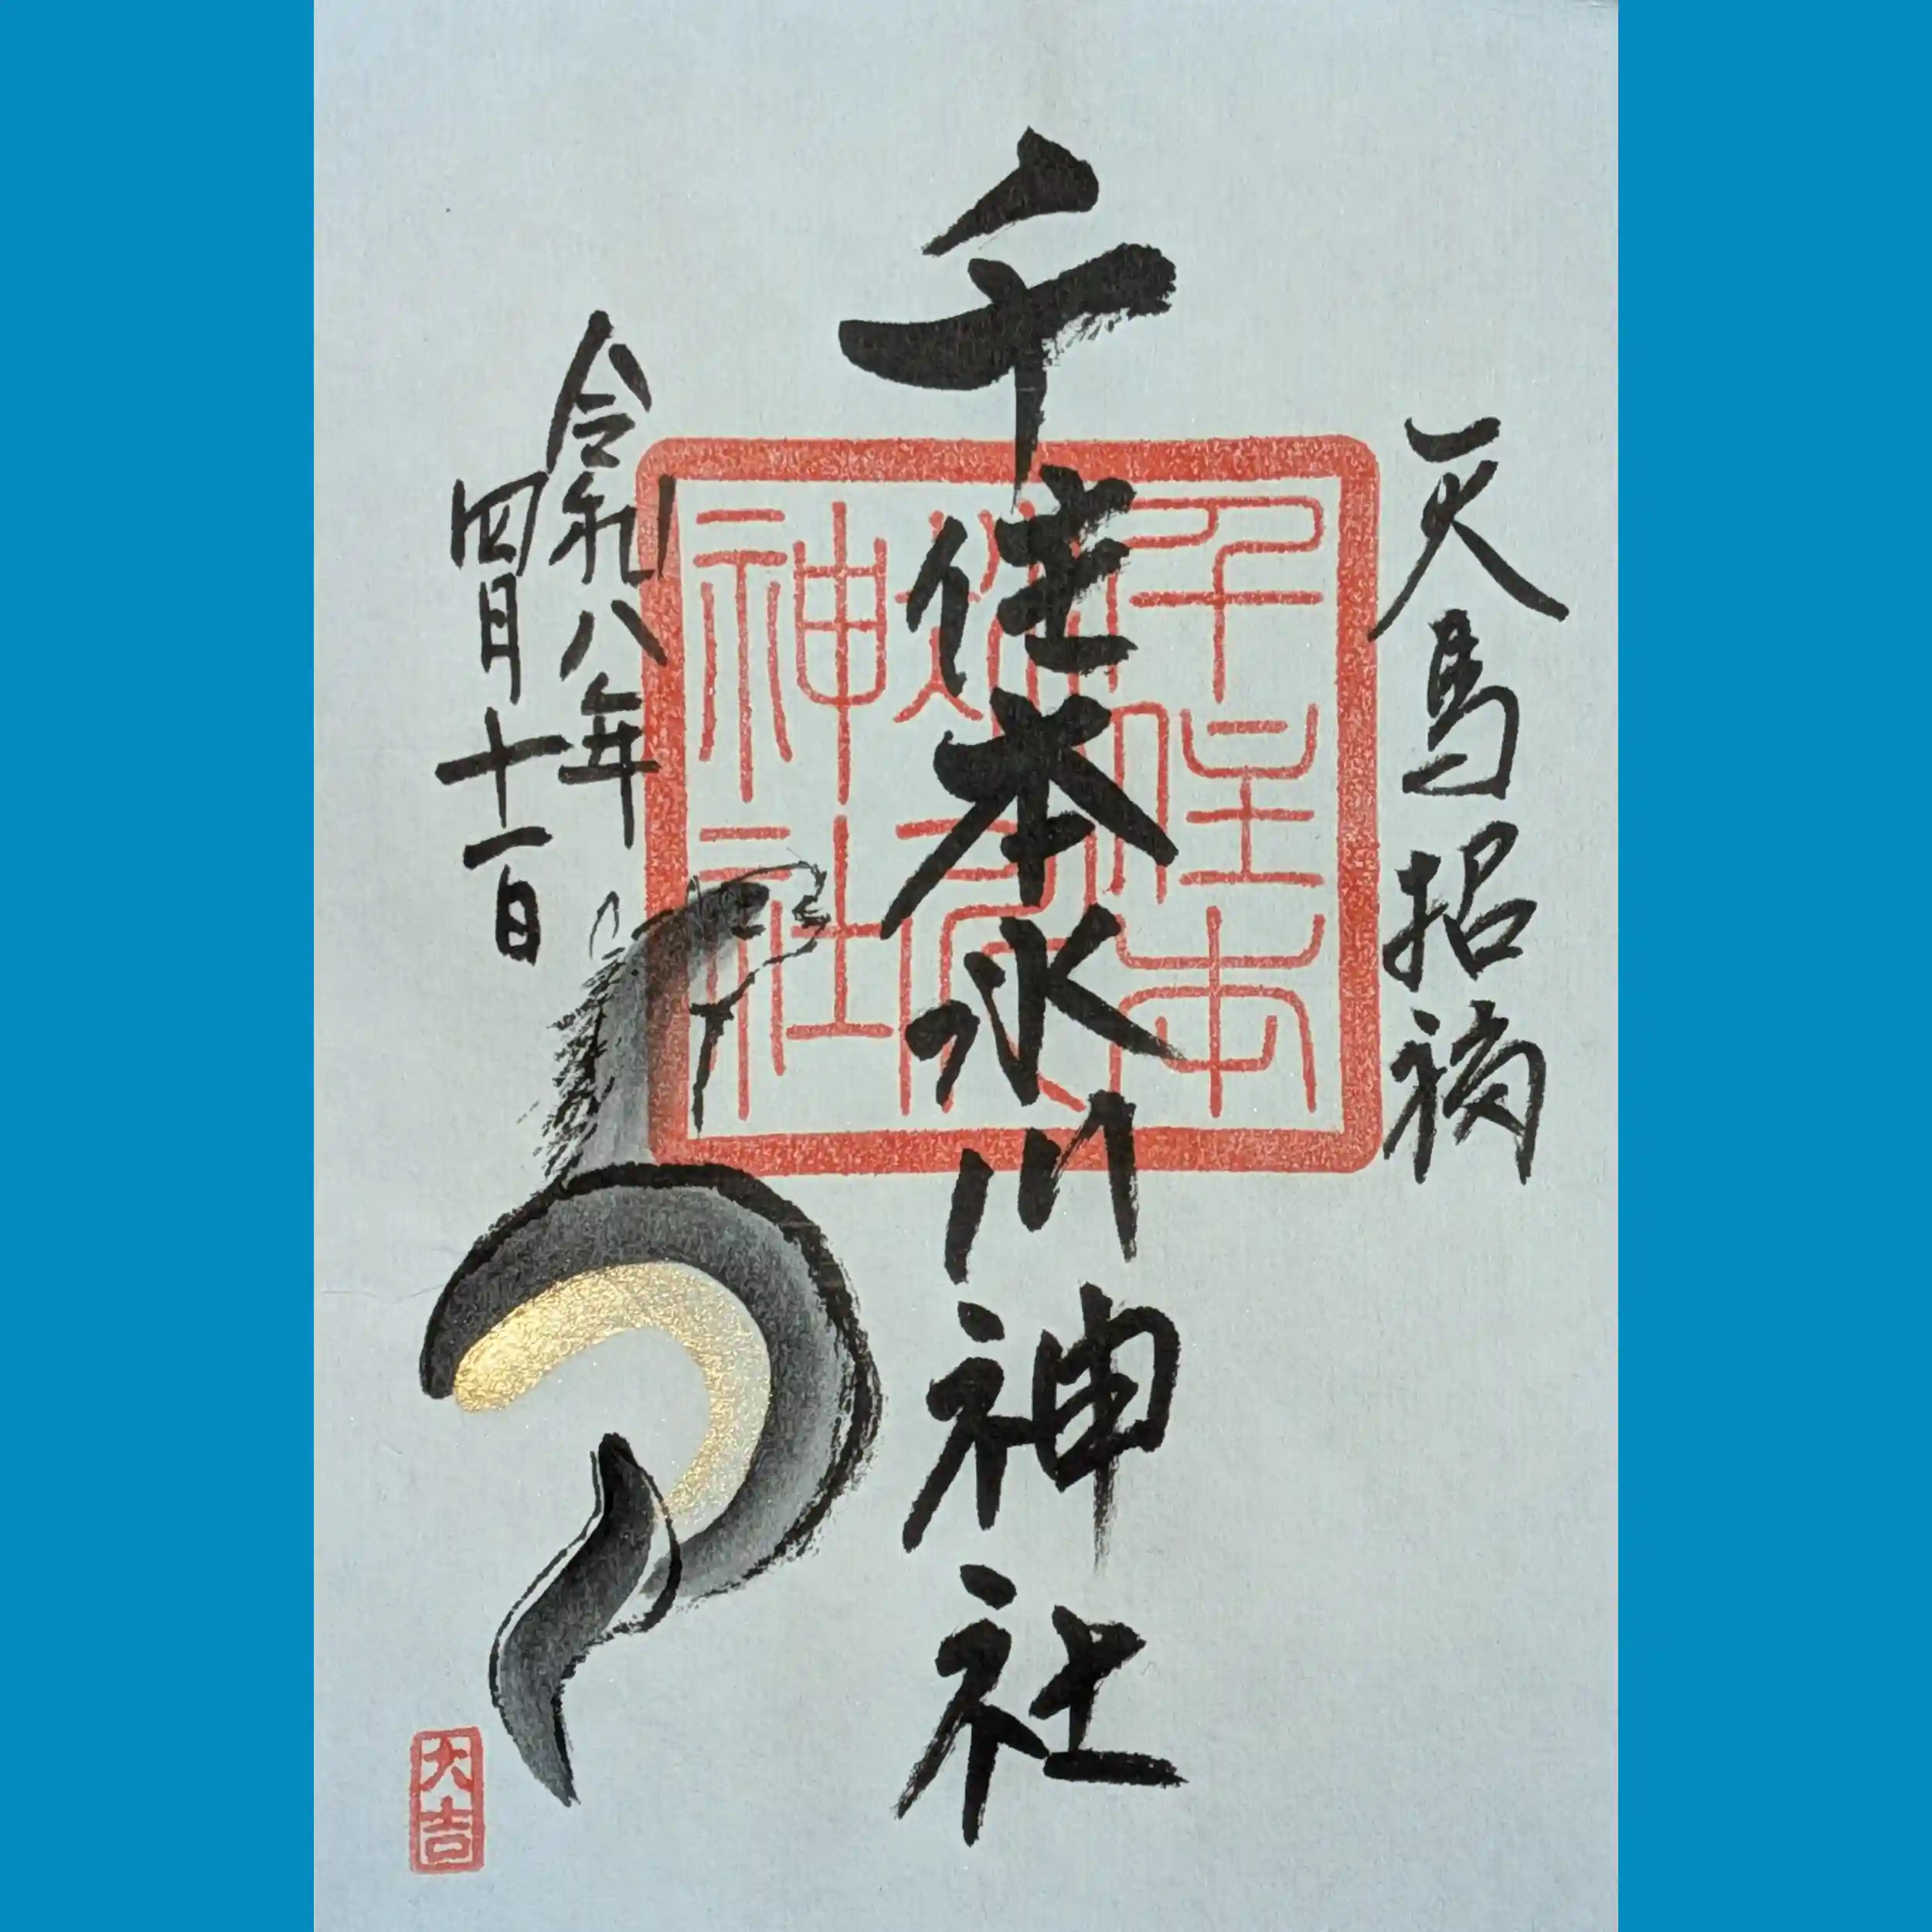 天馬招福
千住本氷川神社
千住本氷川神社
令和八年
四月十一日
大吉